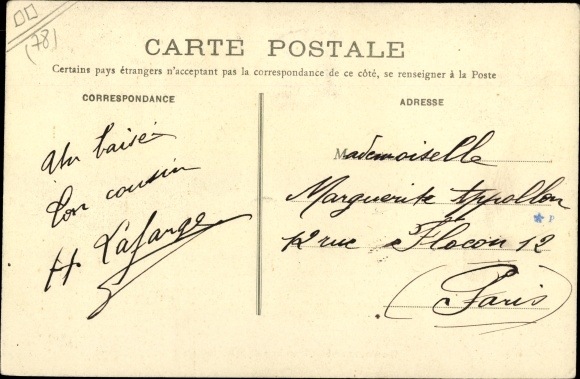 (78)
CARTE POSTALE
Certains pays étrangers n'acceptant pas la correspondance de ce côté, se renseigner à la Poste
CORRESPONDANCE
Un baisé
Ton cousin
H Lafarge
ADRESSE
Mademoiselle
Marguerite Appollon
12 rue Flocon 12
(Paris)
P